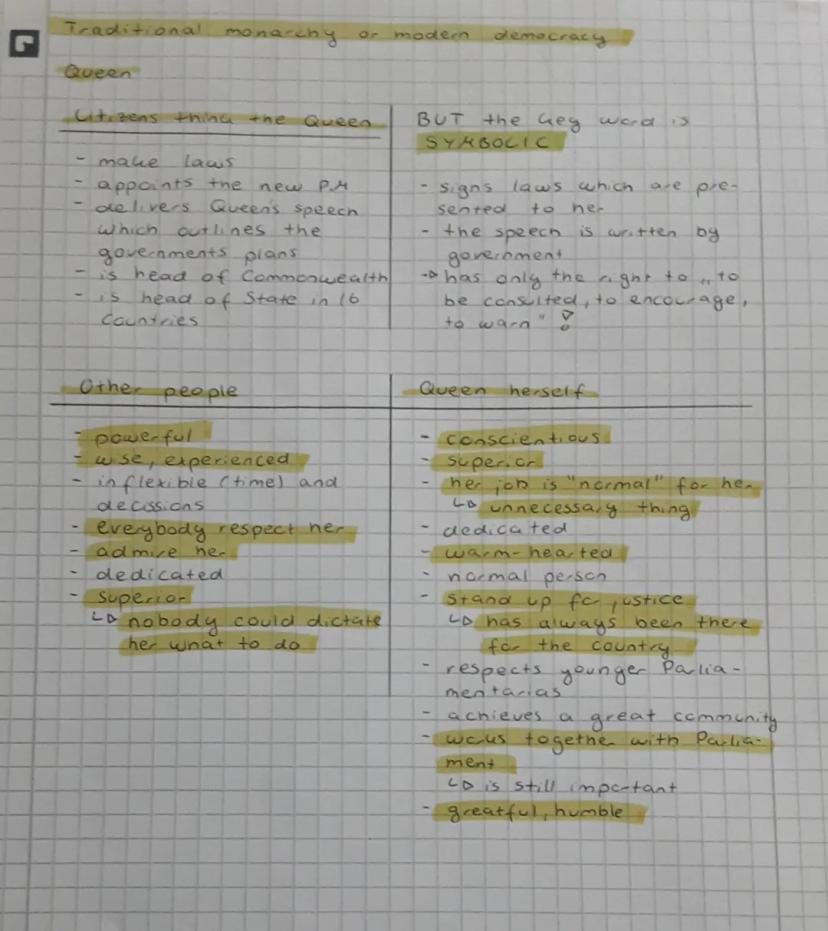 Traditional monarchy or modern democracy
Queen
Citizens think the Queen
- make laws
- appoints the new P.M
- delivers Queen's speech
which outlines the
governments plans
- is head of Commonwealth
- is head of State in 16
Countries
BUT the key word is
SYMBOLIC
- signs laws which are pre-
sented to her
- the speech is written by
government
→ has only the right to „to
be consulted, to encourage,
to warn" !
Other people
- powerful
- wise, experienced
- inflexible (time) and
decissions
- everybody respect her
- admire her
- dedicated
- superior
↳ nobody could dictate
her what to do
Queen herself
- conscientious
- superior
- her job is "normal" for her
↳ unnecessary thing
- dedicated
- warm-hearted
- normal person
- stand up for justice
↳ has always been there
for the country
- respects younger Parlia-
mentarias
- achieves a great community
- works together with Parlia-
ment
↳ is still important
- greatful, humble